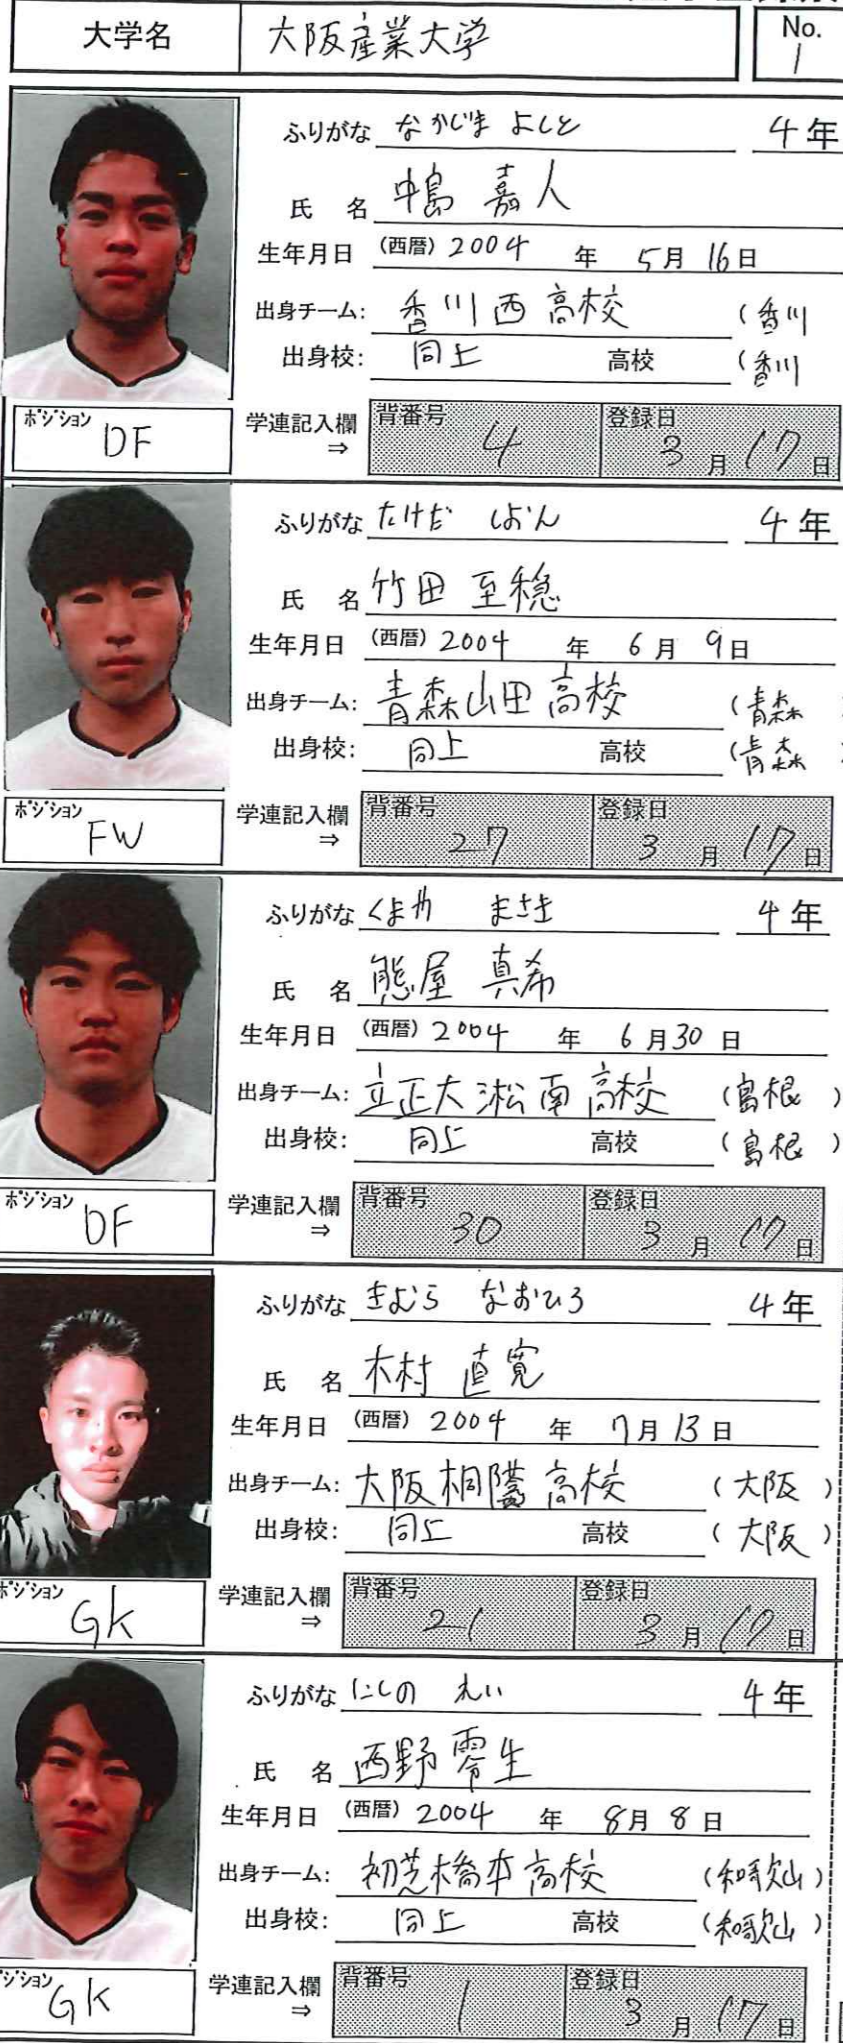 大学名 大阪産業大学 No. 1
ふりがな なかじま よしと 4年
氏 名 中島 嘉人
生年月日 (西暦) 2004 年 5月 16日
出身チーム: 香川西高校 (香川
出身校: 同上 高校 (香川
ポジション DF 学連記入欄 ⇒ 背番号 4 登録日 3月 17日
ふりがな たけだ しおん 4年
氏 名 竹田 至穏
生年月日 (西暦) 2004 年 6月 9日
出身チーム: 青森山田高校 (青森
出身校: 同上 高校 (青森
ポジション FW 学連記入欄 ⇒ 背番号 27 登録日 3月 17日
ふりがな くまや まさき 4年
氏 名 熊屋 真希
生年月日 (西暦) 2004 年 6月30日
出身チーム: 立正大淞南高校 (島根)
出身校: 同上 高校 (島根)
ポジション DF 学連記入欄 ⇒ 背番号 30 登録日 3月 17日
ふりがな きむら なおひろ 4年
氏 名 木村 直寛
生年月日 (西暦) 2004 年 7月 13日
出身チーム: 大阪桐蔭高校 (大阪)
出身校: 同上 高校 (大阪)
ポジション GK 学連記入欄 ⇒ 背番号 21 登録日 3月 17日
ふりがな にしの れい 4年
氏 名 西野 零生
生年月日 (西暦) 2004 年 8月 8日
出身チーム: 初芝橋本高校 (和歌山)
出身校: 同上 高校 (和歌山)
ポジション GK 学連記入欄 ⇒ 背番号 1 登録日 3月 17日